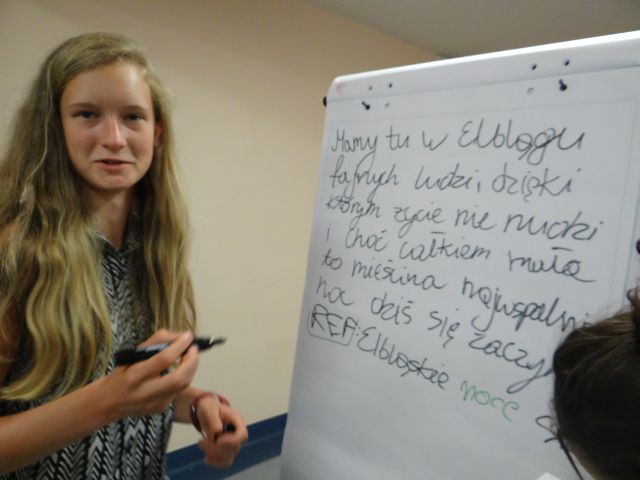 Mamy tu w Elblągu
fajnych ludzi, dzięki
którym życie nie nudzi
i choć całkiem mała
to mieścina najwspalni
noc dziś się zaczy
REF: Elbląskie noce